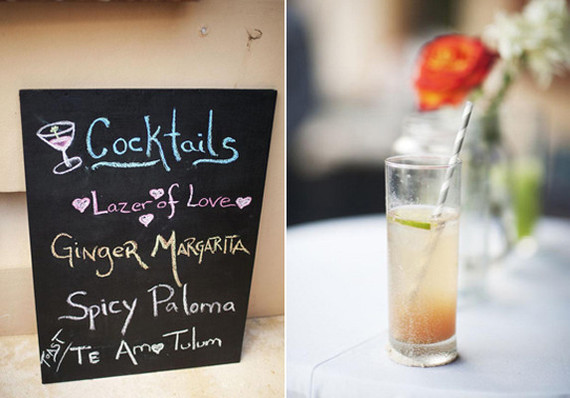 Cocktails
Lazer of Love
Ginger Margarita
Spicy Paloma
TOAST/Te Amo Tulum